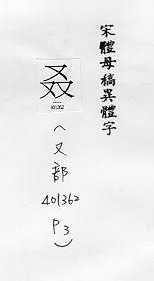 宋體母稿異體字
叒
(又部
401362
P3)